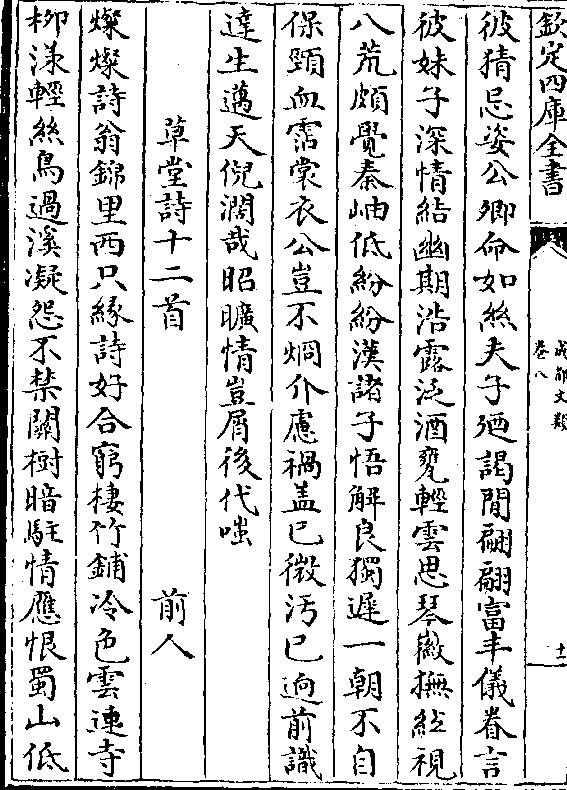 欽定四庫全書
成都文類
卷八
十一
彼猜忌姿公卿命如絲夫子廼謁閒翩翩富丰儀眷言
彼姝子深情結幽期浩露泛酒甕輕雲思琴徽撫絃視
八荒頗覺秦岫低紛紛漢諸子悟解良獨遲一朝不自
保頸血霑裳衣公豈不烱介慮禍盖已微汚已逈前識
達生邁天倪濶哉昭曠情豈屑後代嗤
草堂詩十二首 前人
燦燦詩翁錦里西只緣詩好合窮棲竹鋪冷色雲連寺
柳漾輕絲鳥過溪凝怨不禁關樹暗駐情應恨蜀山低